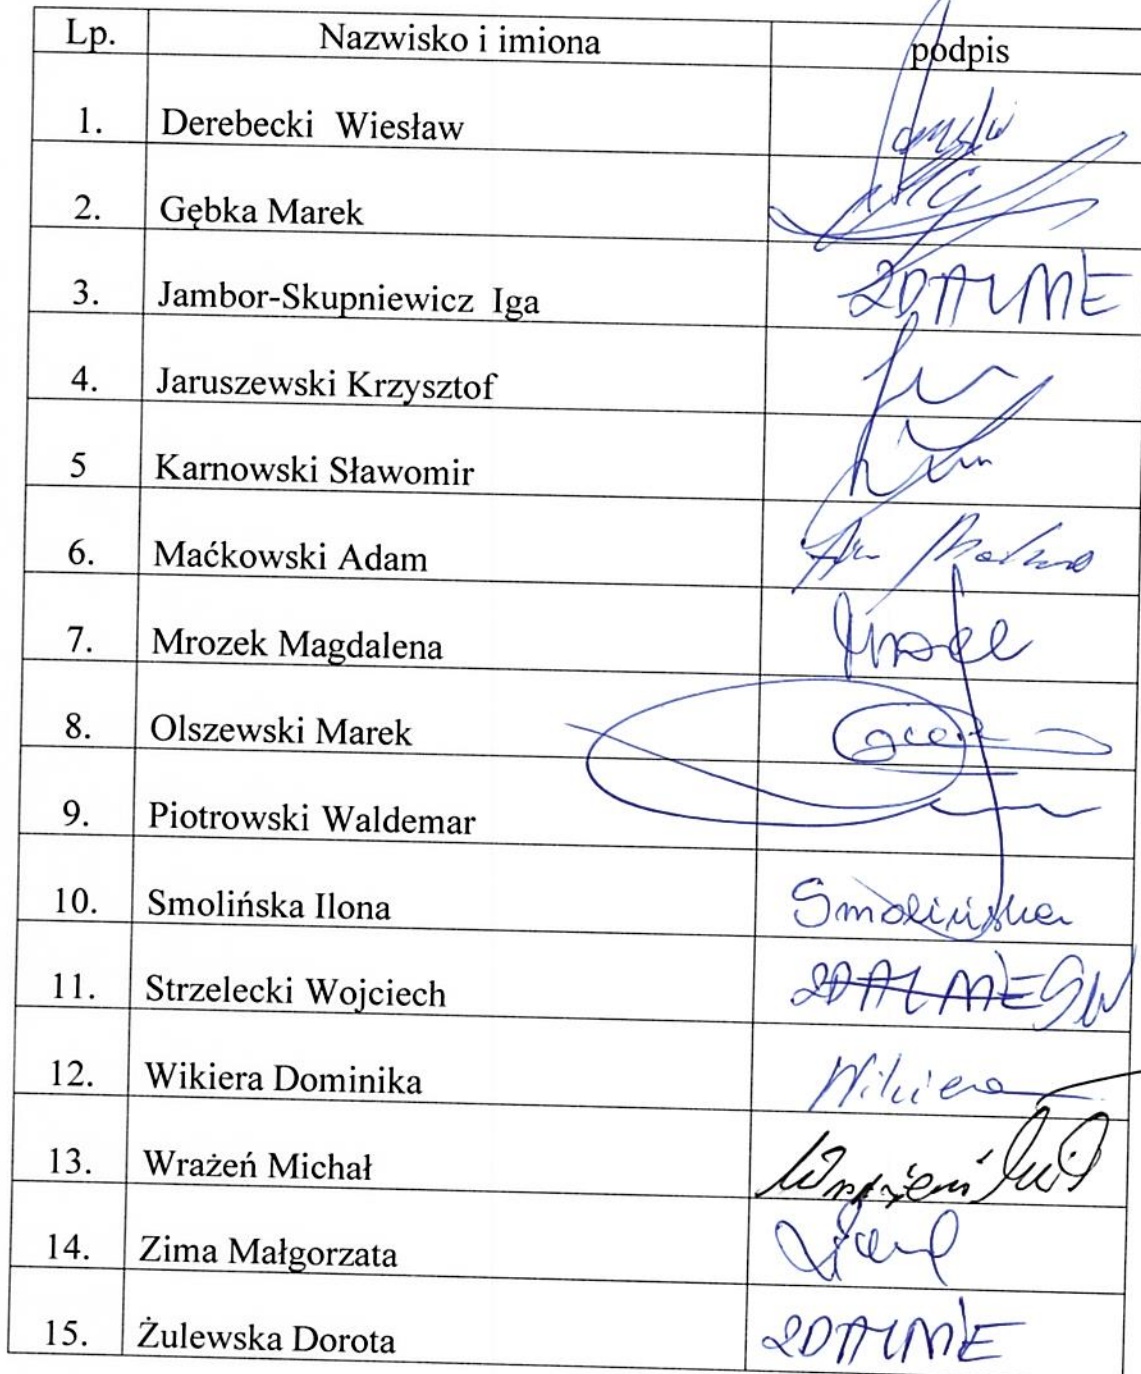 Lp. Nazwisko i imiona podpis
1. Derebecki Wiesław
2. Gębka Marek
3. Jambor-Skupniewicz Iga ZDALNIE
4. Jaruszewski Krzysztof
5 Karnowski Sławomir
6. Maćkowski Adam
7. Mrozek Magdalena
8. Olszewski Marek
9. Piotrowski Waldemar
10. Smolińska Ilona Smolińska
11. Strzelecki Wojciech ZDALNIE SW
12. Wikiera Dominika Wikiera
13. Wrażeń Michał Wrażeń
14. Zima Małgorzata
15. Żulewska Dorota ZDALNIE